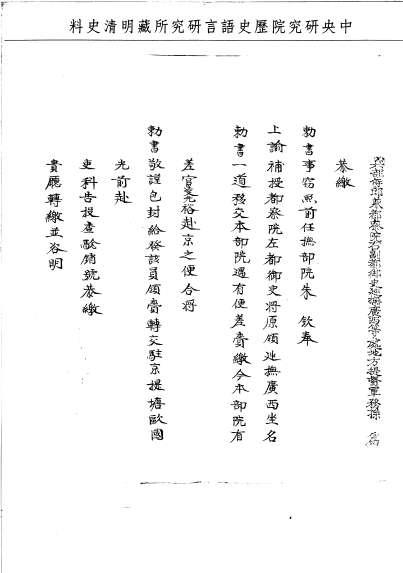 中央研究院歷史語言研究所藏明清史料
兵部侍郎兼都察院右副都御史巡撫廣西等處地方提督軍務操 為
恭繳
勅書事窃照前任撫部院朱 欽奉
上諭補授都察院左都御史將原領廵撫廣西坐名
勅書一道移交本部院遇有便差賫繳今本部院有
差官裕赴京之便合將
勅書敬謹包封給發該員領賫轉交駐京提塘歐國
光前赴
吏科告投查驗銷號恭繳
貴廳轉繳並咨明